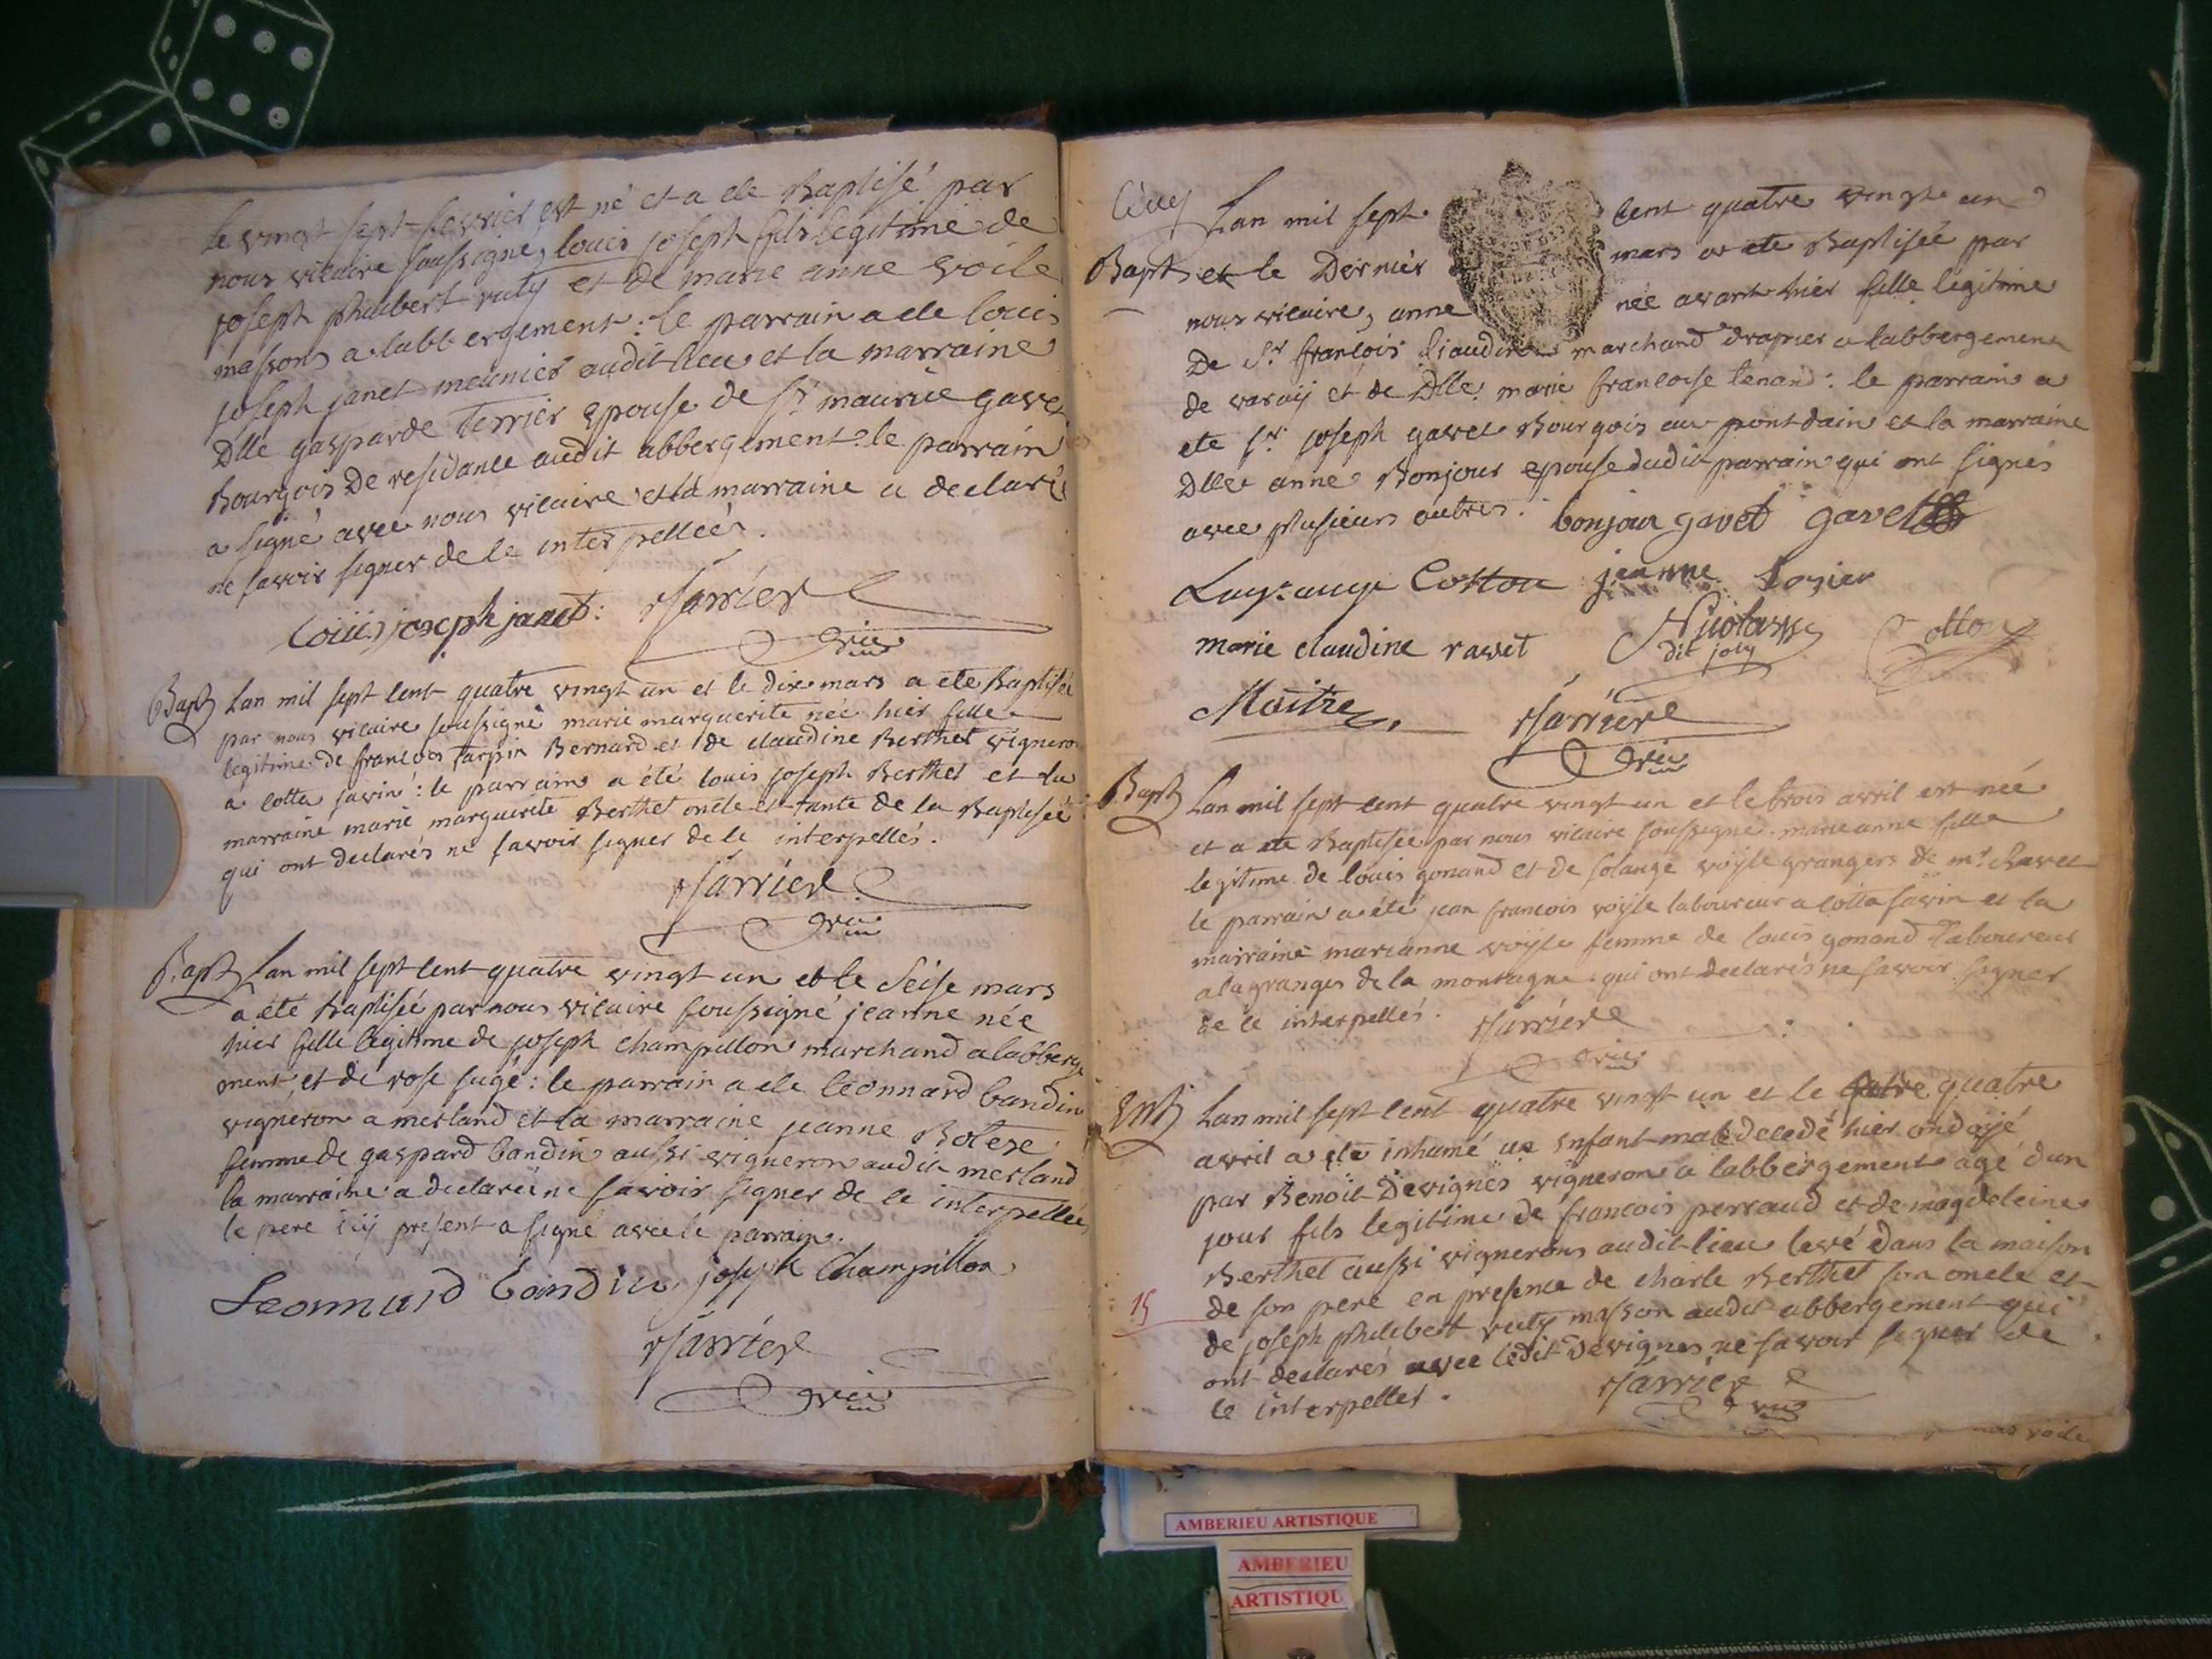 le vingt sept fevrier est né et a ete Baptisé par
nous vicaire soussigné, louis joseph fils legitime de
joseph philibert ruty et de marie anne voile
massons a labbergement : le parrain a ete louis
joseph janet meunier audit lieu et la marraine
Dlle gasparde terrier epouse de sr maurice gavet
Bourgois de residance audit abbergement. le parrain
a signé avec nous vicaire et la marraine a declaré
ne savoir signer de ce interpellée.
Louis joseph janet : Marriér
vic
Bapt Lan mil sept cent quatre vingt un et le dix mars a ete Baptisée
par nous vicaire soussigné marie marguerite née hier fille
legitime de francois tarpin Bernard et de claudine Berthet vigneron
a cotta savin : le parrain a été louis joseph Berthet et la
marraine marie marguerite Berthet oncle et tante de la Baptisée
qui ont declarés ne savoir signer de ce interpellés.
Marriér
vic
Bapt Lan mil sept cent quatre vingt un et le seise mars
a ete Baptiseé par nous vicaire soussigné jeanne née
hier fille legitime de joseph champillon marchand a labberge
ment et de rose sugé : le parrain a ete leonnard bandin
vigneron a merland et la marraine jeanne
femme de gaspard bandin aussi vigneron audit merland
la marraine a declareé ne savoir signer de ce interpellée
le pere icy present a signé avec le parrain.
Leonnard bandin joseph Champillon
Marriér
vic
Lan mil sept cent quatre vingt un
Bapt et le Dernier mars a ete Baptisée par
nous vicaire, anne née avant hier fille legitime
De Sr francois marchand drapier a labbergement
de varaij et de Dlle marie francoise tenand : le parrain a
ete sr joseph gavet Bourgois au pont dain et la marraine
Dlle anne Bonjour epouse dudit parrain qui ont signés
avec plusieurs autres. bonjour gavet gavet
Cotton jeanne
marie claudine ravet Nicolas Cotton
dit joly
Maitre, Marriér
vic
Bapt Lan mil sept cent quatre vingt un et le trois avril est née
et a ete Baptisée par nous vicaire soussigné marie anne fille
legitime de louis gonand et de solange voyle grangers de mr
le parrain a été jean francois voyle laboureur a cotta savin et la
marraine marianne voyle femme de louis gonand laboureur
a la granges de la montagne qui ont declarés ne savoir signer
de ce interpellés. Marriér
vic
Lan mil sept cent quatre vingt un et le quatre
avril a ete inhumé un enfant male decedé hier ondoyé
par Benoit Devignes vigneron a labbergement agé dun
jour fils legitime de francois perraud et de magdeleine
Berthet aussi vignerons audit lieu levé dans la maison
15 de son pere en presence de charle Berthet son oncle et
de joseph philibert ruty masson audit abbergement qui
ont declarés avec ledit Devignes ne savoir signer de
ce interpellés. Marriér
vic
voile
AMBERIEU ARTISTIQUE
AMBERIEU
ARTISTIQU